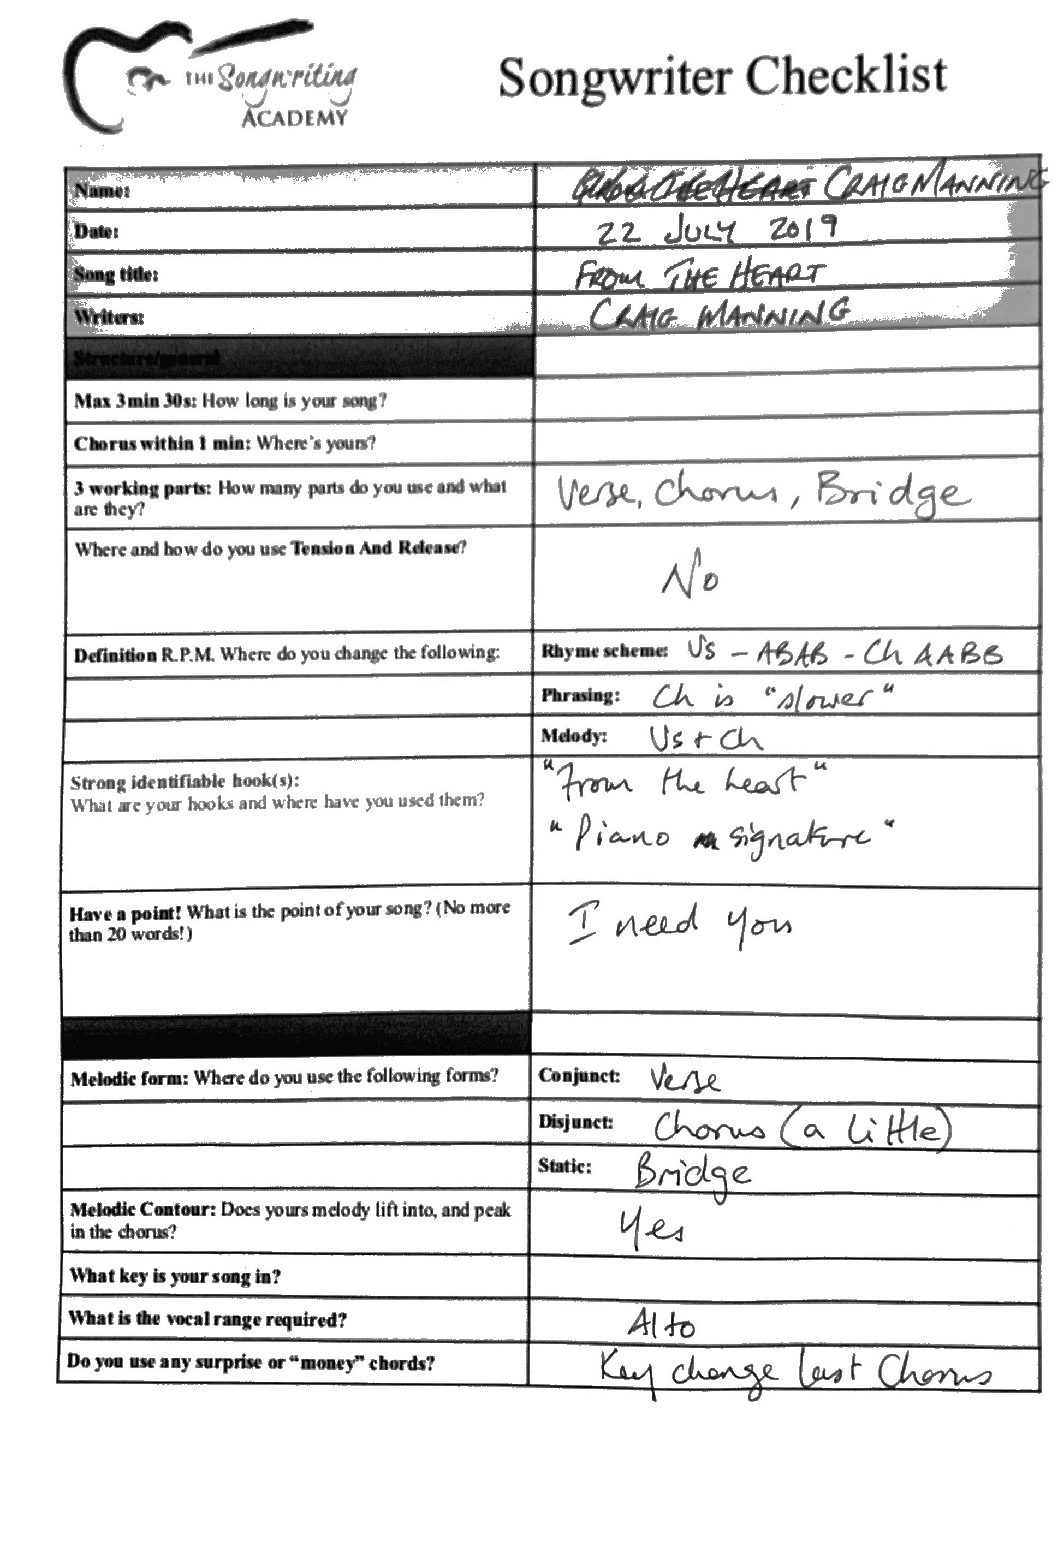 THE Songwriting
ACADEMY
Songwriter Checklist
Name: THE HEART CRAIG MANNING
Date: 22 JULY 2019
Song title: FROM THE HEART
Writers: CRAIG MANNING
Structure/general
Max 3min 30s: How long is your song?
Chorus within 1 min: Where's yours?
3 working parts: How many parts do you use and what
are they?
Verse, Chorus, Bridge
Where and how do you use Tension And Release?
No
Definition R.P.M. Where do you change the following:
Rhyme scheme: Vs - ABAB - Ch AABB
Phrasing: Ch is "slower"
Melody: Vs + Ch
Strong identifiable hook(s):
What are your hooks and where have you used them?
"From the heart"
"Piano signature"
Have a point! What is the point of your song? (No more
than 20 words!)
I need you
Melodic form: Where do you use the following forms?
Conjunct: Verse
Disjunct: Chorus (a little)
Static: Bridge
Melodic Contour: Does yours melody lift into, and peak
in the chorus?
Yes
What key is your song in?
What is the vocal range required? Alto
Do you use any surprise or "money" chords? Key change last Chorus